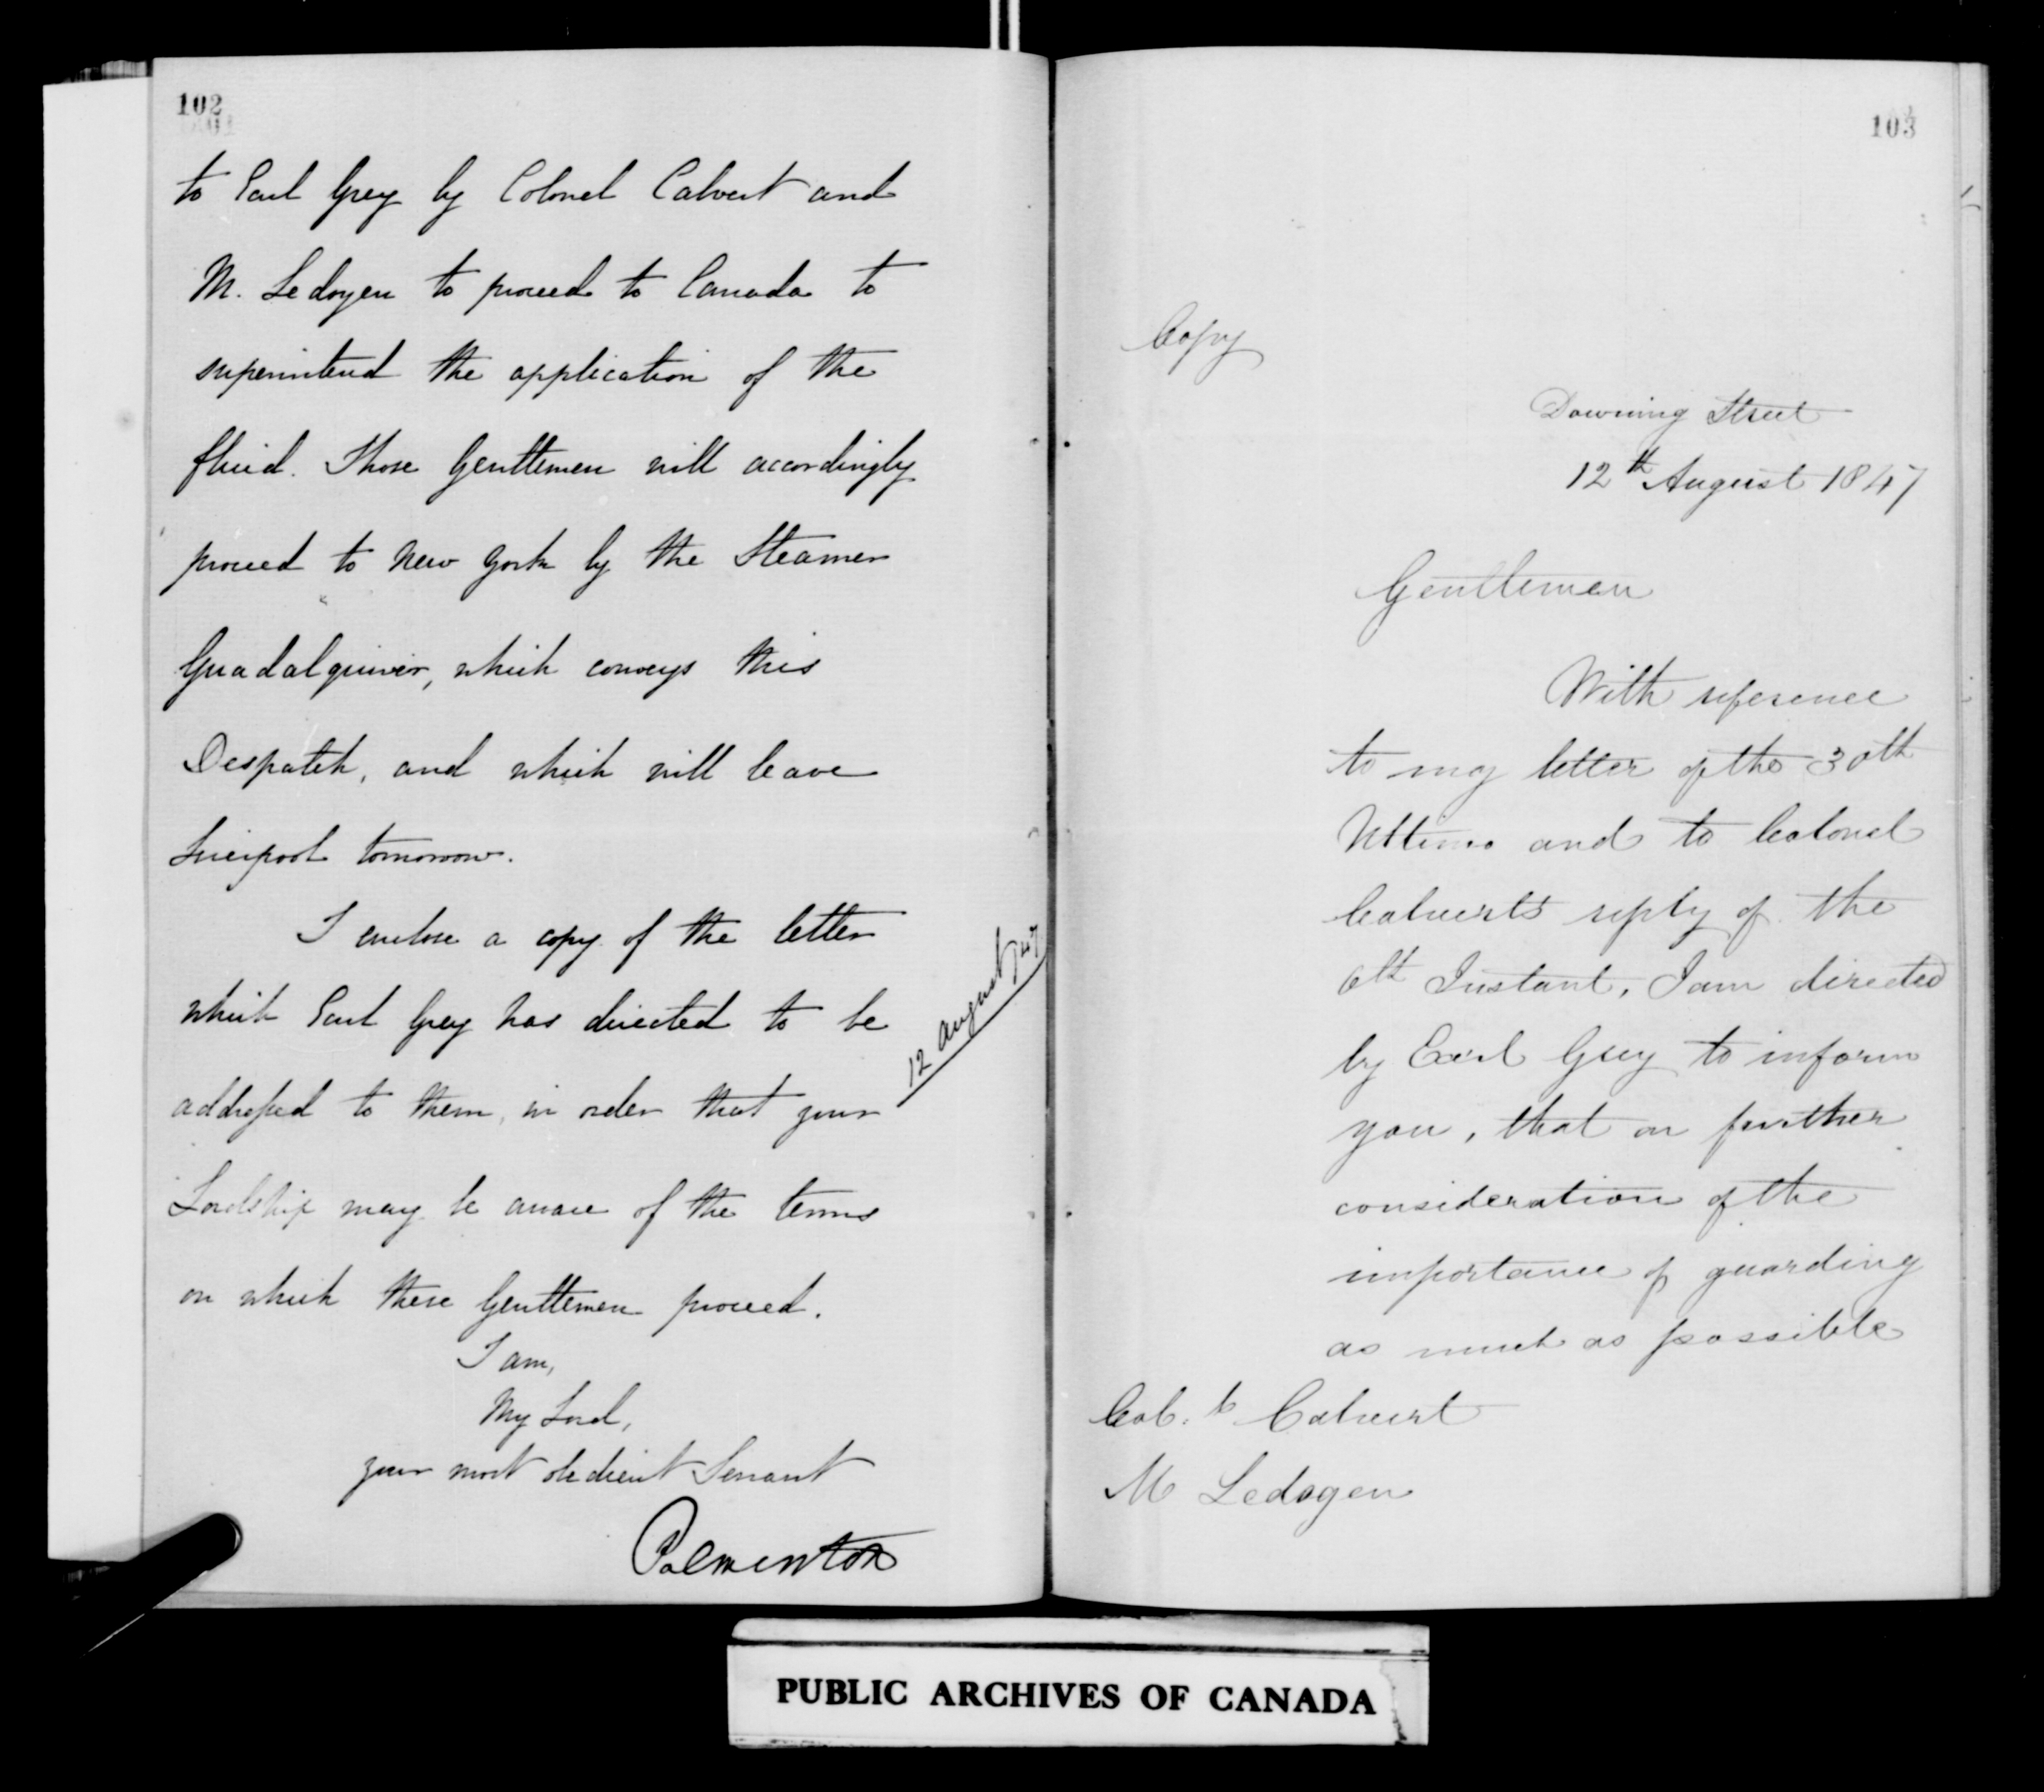 102
to Earl Grey by Colonel Calvert and
M. Ledoyen to proceed to Canada to
superintend the application of the
fluid. Those Gentlemen will accordingly
proceed to New York by the Steamer
Guadalquiver, which conveys this
Despatch, and which will leave
Liverpool tomorrow.
I enclose a copy of the letter
which Earl Grey has directed to be
addressed to them, in order that your
Lordship may be aware of the terms
on which these Gentlemen proceed.
12 August /47
I am,
My Lord,
your most obedient Servant
Palmerston
103
Copy
Downing Street
12th August 1847
Gentlemen
With reference
to my letter of the 30th
Ultimo and to Colonel
Calvert's reply of the
6th Instant, I am directed
by Earl Grey to inform
you, that on further
consideration of the
importance of guarding
as much as possible
Col. Calvert
M Ledoyen
PUBLIC ARCHIVES OF CANADA